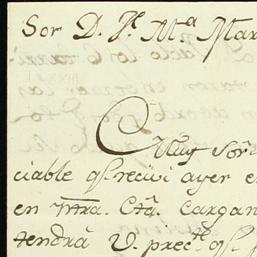 Sor D. Je. Ma. Mar
Muy Sor
ciable qe. recivi ayer e
en Ntra. Cta. cargan
tendrá V. prec.te qe.